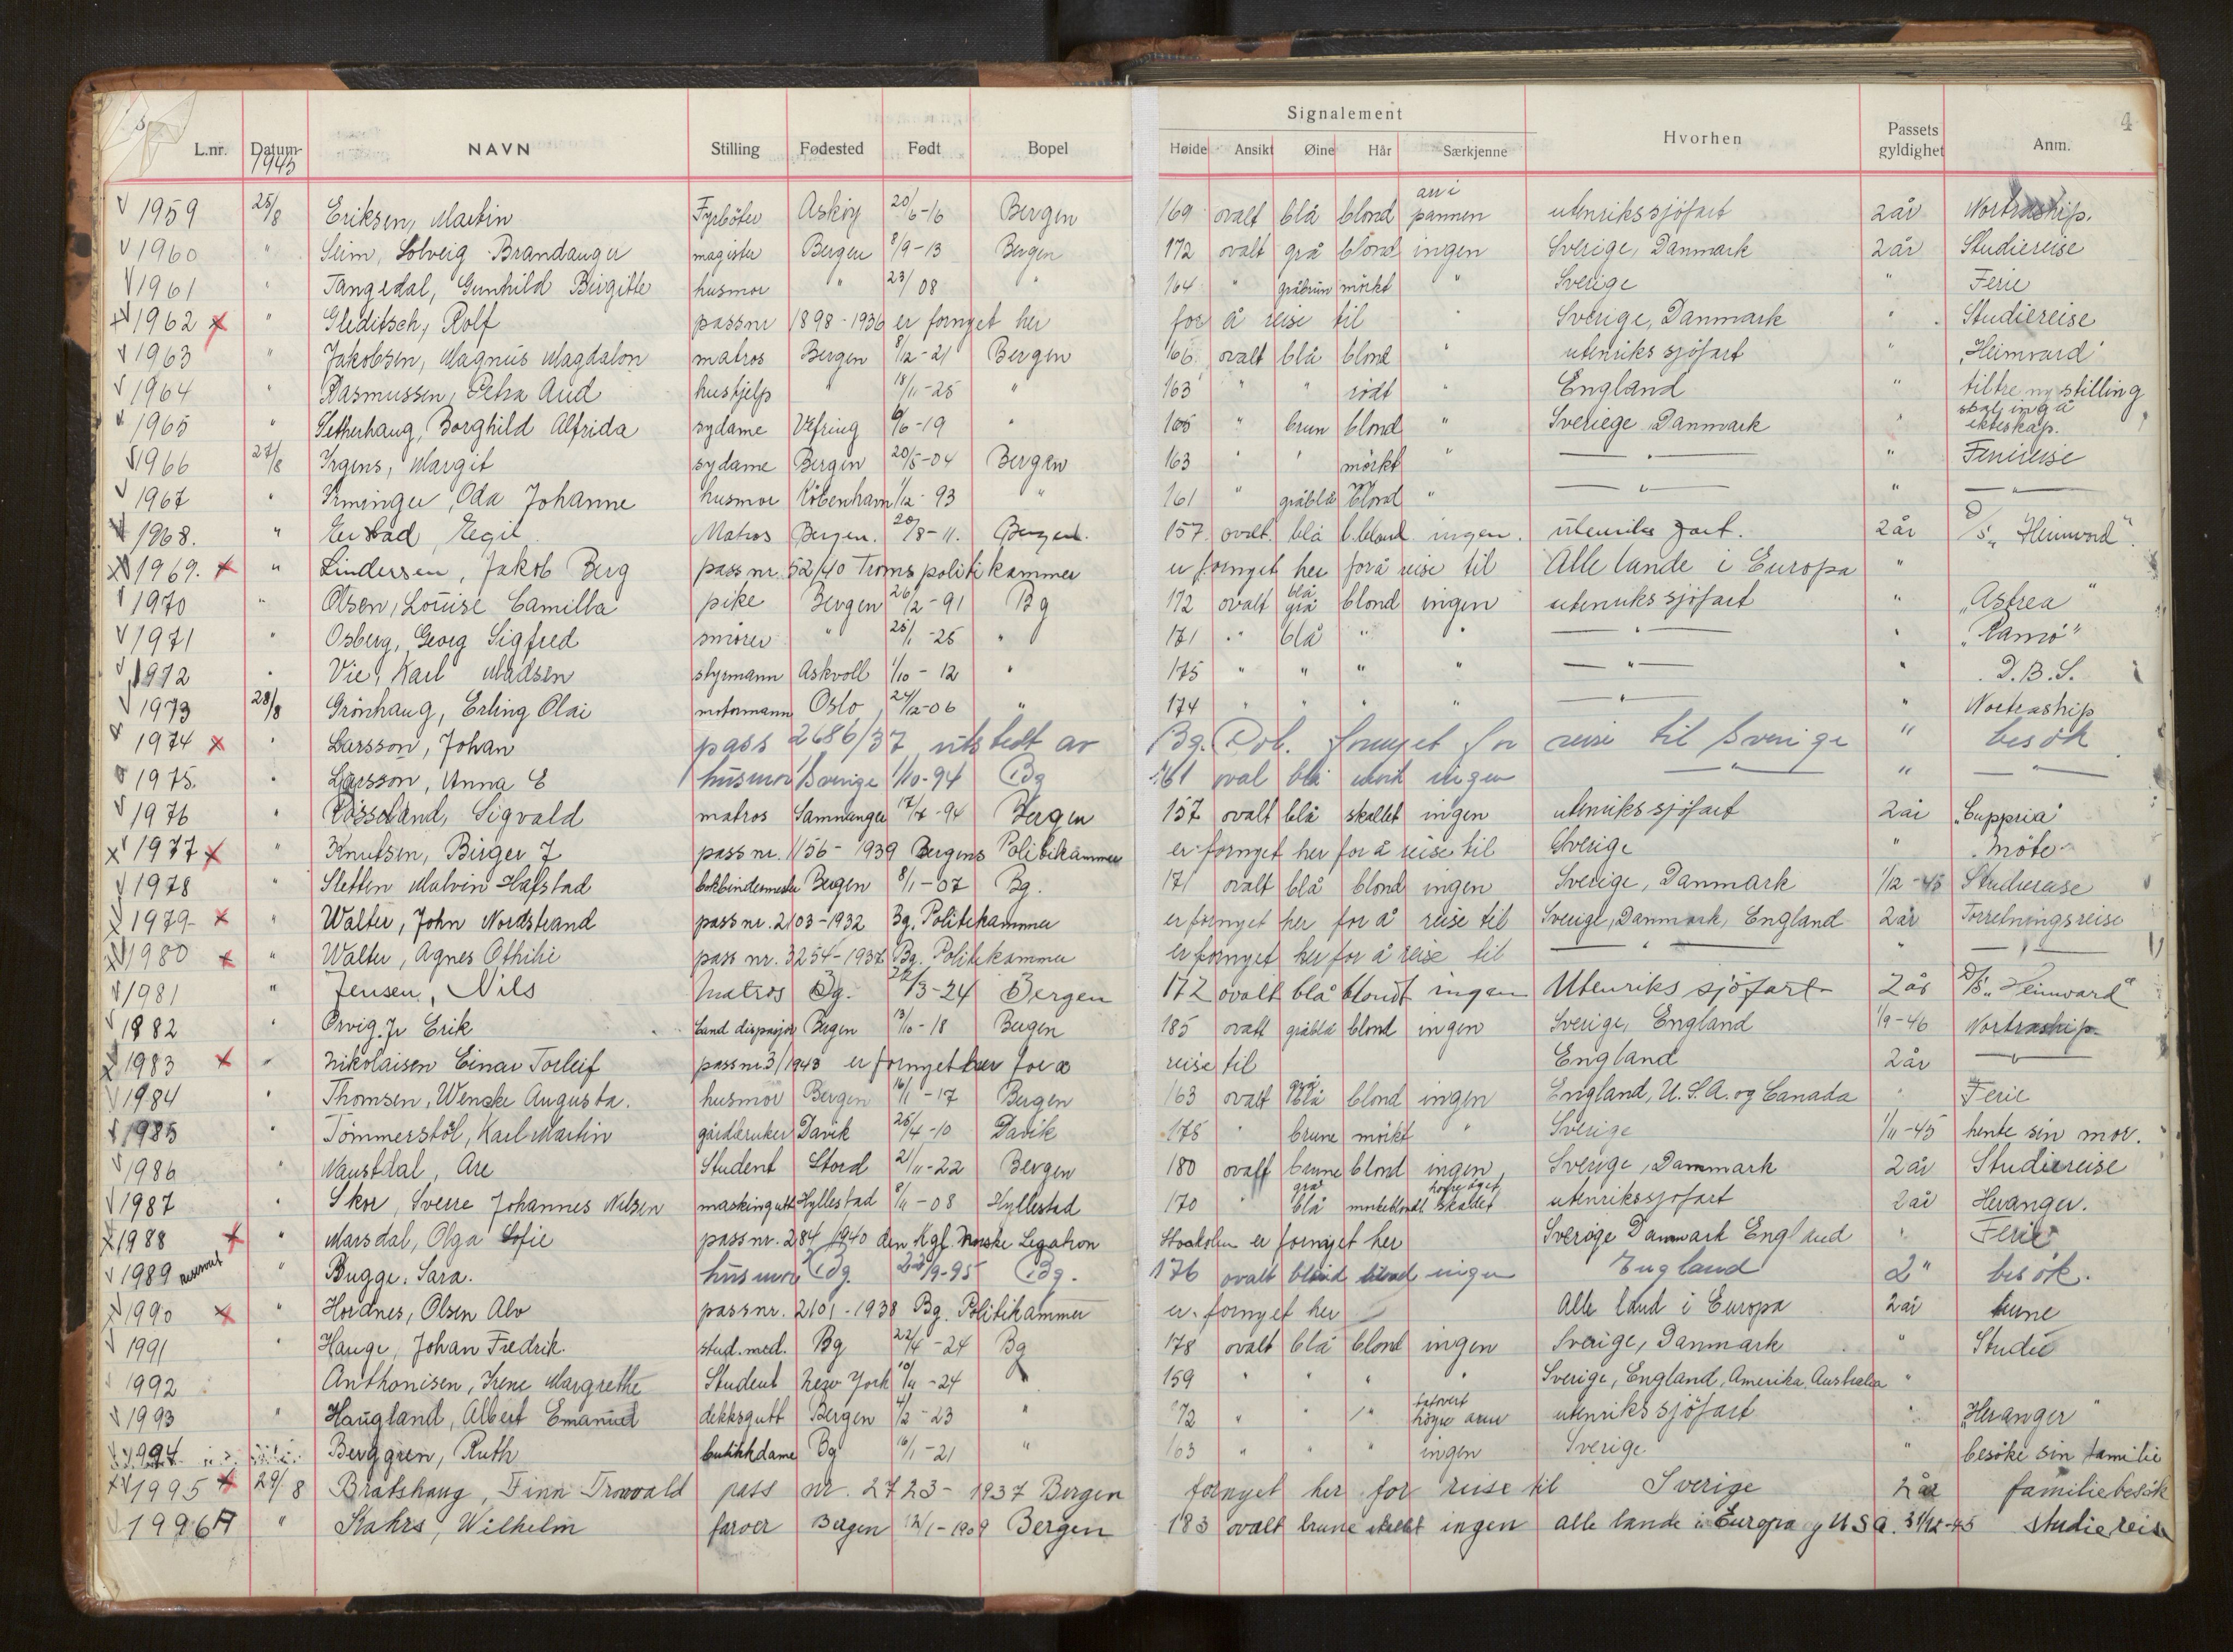 Signalement
L.nr. Datum NAVN Stilling Fødested Født Bopel Høide Ansikt Øine Hår Særkjenne Hvorhen Passets gyldighet Anm.
1945
4
1959 25/8 Eriksen, Martin Fyrböter Asköy 20/6-16 Bergen 169 ovalt blå blond arr i pannen utenrikssjöfart 2 år Nortraship.
1960 " Seim, Solveig Brandanger magister Bergen 8/9-13 Bergen 172 ovalt grå blond ingen Sverige, Danmark 2 år Studiereise
1961 " Tangedal, Gunhild Birgitte husmor " 23/ 08 " 164 " gråbrun mörkt " Sverige " Ferie
1962 x " Gleditsch, Rolf passnr 1898-1936 er fornyet her for å reise til Sverige, Danmark " Studiereise
1963 " Jakobsen, Magnus Magdalon matros Bergen 8/12-21 Bergen 166 ovalt blå blond " utenriks sjöfart " "Heimvard"
1964 " Rasmussen, Petra Aud hushjelp 18/11-25 " 163 " " rödt " England " tiltre ny stilling
1965 " Setherhaug, Borghild Alfrida sydame Vefring 6/6-19 " 165 " brun blond " Sveriege Danmark " skal inngå ekteskap.
1966 27/8 Irgens, Margit sydame Bergen 20/5-04 Bergen 163 " " mörkt " — " — " Feriereise
1967 " Irminger, Oda Johanne husmor Köbenhavn 1/12-93 " 161 " gråblå blond " — " — " — " —
1968. " Egil Matros Bergen. 20/8-11. Bergen. 157 ovalt. blå l.blond ingen. utenriks fart. 2 år D/S "Heimvord".
1969. x " Lindersen, Jakob Berg pass nr. 52/40 Troms politikammer er fornyet her for å reise til Alle lande i Europa "
1970 " Olsen, Louise Camilla pike Bergen 26/2-91 Bg 172 ovalt blå grå blond ingen utenriks sjöfart " "Astrea"
1971 " Osberg, Georg Sigfred smörer " 25/1-25 " 171 " blå " " — " — " "Ramö"
1972 " Vie, Karl Madsen styrmann Askvoll 1/10-12 " 175 " " " " — " — " D.B.S.
1973 28/8 Grönhaug, Erling Olai motormann Oslo 24/12-06 " 174 " " " " — " — " Nortraship
1974 x " Larsson, Johan pass 2686/37 utstedt av Bg. Pol. fornyet for reise til Sverige " besök
1975. " Larsson, Anna E husmor Sverige 1/10-94 Bg 161 oval blå ingen — " — " — " —
1976 " Rösseland, Sigvald matros Samnanger 17/7-94 Bergen 157 ovalt blå skallet ingen utenriks sjöfart 2 år "Cuppria"
1977 x " Knutsen, Birger J pass nr. 1156-1939 Bergens Politikammer er fornyet her for å reise til Sverige " möte
1978 " Sletten Malvin Hafstad bokbindermester Bergen 8/1-07 Bg. 171 ovalt blå blond ingen Sverige, Danmark 1/12-45 Studiereise
1979 x " Walter, John Nordstrand pass nr. 2103-1932 Bg. Politikammer er fornyet her for å reise til Sverige, Danmark, England 2 år Forretningsreise
1980 x " Walter, Agnes Othilie pass nr. 3254-1937 Bg. Politikammer er fornyet her for å reise til — " — " — " —
1981 " Jensen, Nils Matros Bg. 22/3-24 Bergen 172 ovalt blå blondt ingen Utenriks sjöfart 2 år D/S "Heimvard"
1982 " Orvig. Jr Erik Land dispasjör Bergen 13/10-18 Bergen 185 ovalt gråblå blond ingen Sverige, England 1/9-46 Nortraship
1983 x " Nikolaisen Einar Torleif pass nr 3/1943 er fornyet her for å reise til England 2 år — " —
1984 " Thomsen, Wenche Augusta. husmor Bergen 16/11-17 Bergen 163 ovalt grå blå blond ingen England, U.S.A. og Canada " Ferie
1985 " Tömmerstöl, Karl Martin gårdbruker Davik 25/4-10 Davik 175 " brune mörkt " Sverige 1/11-45 hente sin mor.
1986 " Naustdal, Are Student Stord 2/11-22 Bergen 180 ovalt brune blond ingen Sverige, Danmark 2 år Studiereise
1987 " Skor, Sverre Johannes Nilsen maskingutt Hyllestad 8/11-08 Hyllestad 170 " grå blå mörkeblondt skallet utenrikssjöfart 2 år Heranger.
1988 x " Marsdal, Olga Sofie pass nr. 284 1940 den Kgl. Norske Legation Stockholm er fornyet her Sverige Danmark England " Ferie
1989 " Bugge, Sara. husmor Bg 23/9-95 Bg. 176 ovalt blond ingen England 2 " besök.
1990 x " Hordnes, Olsen Alv pass nr. 2101-1938 Bg. Politikammer er fornyet her Alle land i Europa 2 år turne
1991 " Hauge, Johan Fredrik. stud. med. Bg 22/4-24 Bg 178 ovalt blå blond ingen Sverige, Danmark " Studie
1992 Anthonisen, Irene Margrethe Student New York 10/11-24 " 159 " " " " Sverige, England, Amerika, Australia "
1993 " Haugland, Albert Emanuel dekksgutt Bergen 4/2-23 " 172 " " " tatovert höyre arm utenriks sjöfart " "Heranger"
1994 Berggren, Ruth butikkdame Bg 16/1-21 " 163 " " " ingen Sverige " besöke sin familie
1995 x 29/8 Bratshaug, Finn Tronvald pass nr. 2723-1937 Bergen fornyet her for reise til Sverige 2 år familiebesök
1996 " Kahrs, Wilhelm farver Bergen 12/1-1909 Bergen 183 ovalt brune skallet ingen alle lande i Europa og USA. 31/12-45 studiereise